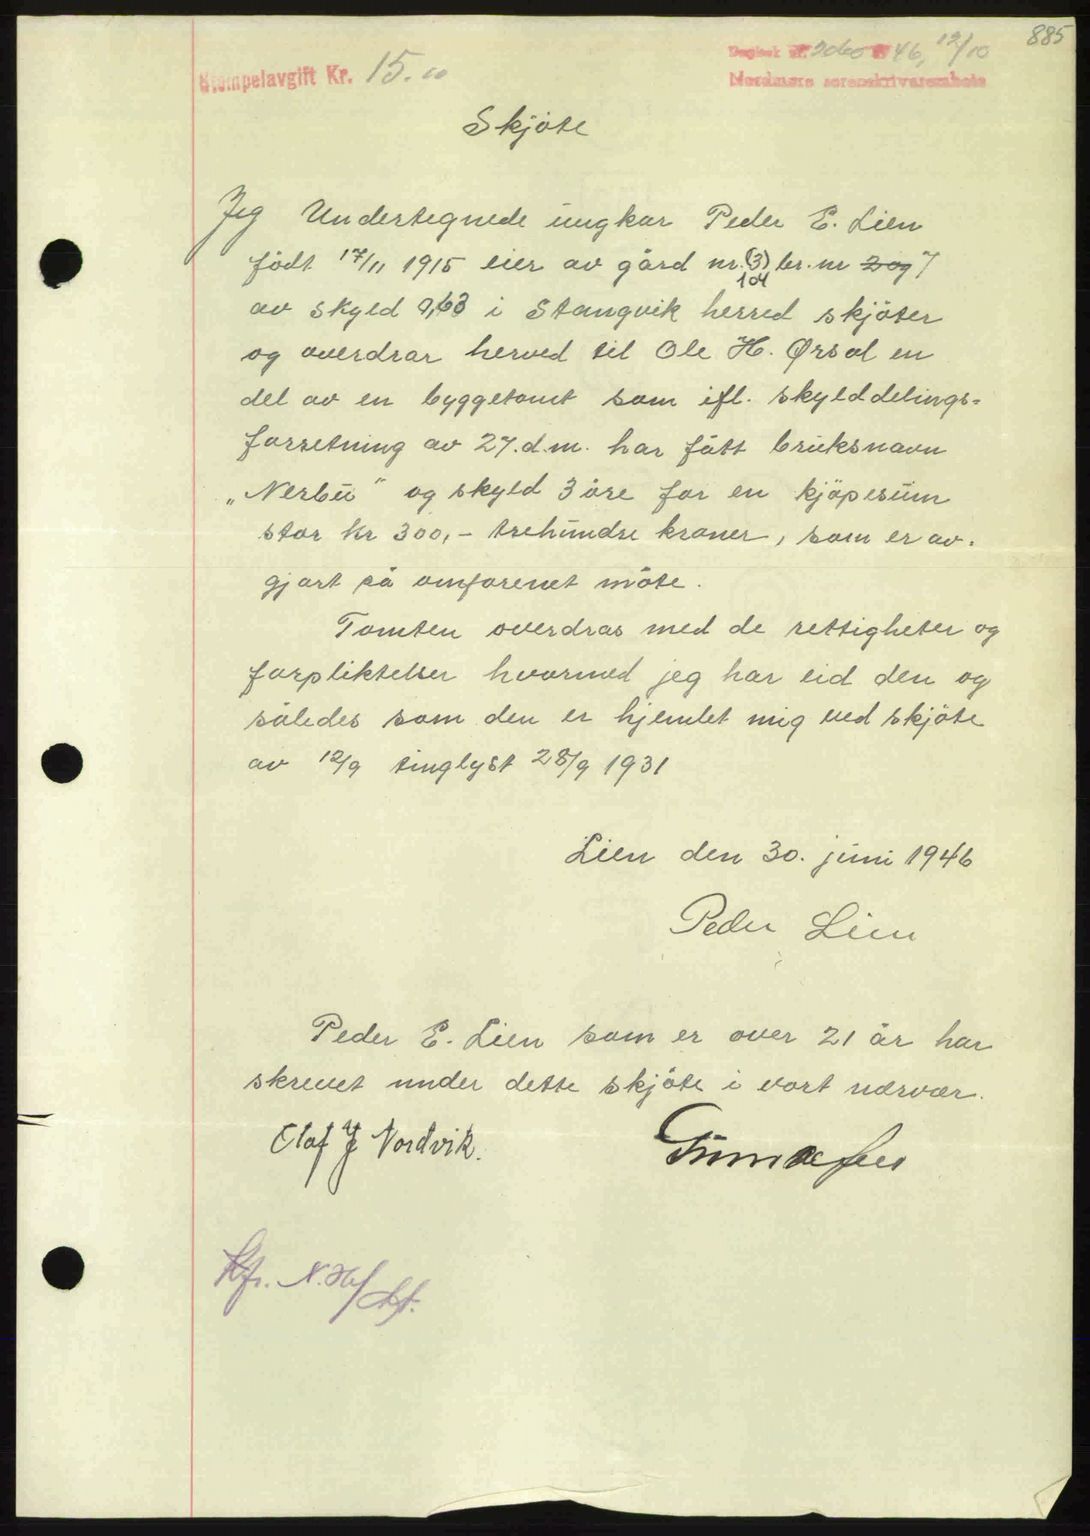 885
Stempelavgift Kr. 15.00
Dagbok nr. 2060 46, 12/10
Nordmøre sorenskriverembete
Skjöte
Jeg Undertegnede ungkar Peder E. Lien
født 17/11 1915 eier av gård nr. (3) br. nr 2 og 7
104
av skyld 0,63 i Stangvik herred skjöter
og overdrar herved til Ole H. Ørsal en
del av en byggetomt som ifl. skylddelings-
forretning av 27. d.m. har fått bruksnavn
„Nerbu" og skyld 3 öre for en kjöpesum
stor kr 300,- trehundre kroner, som er av-
gjort på omforenet måte.
Tomten overdras med de rettigheter og
forpliktelser hvormed jeg har eid den og
således som den er hjemlet mig ved skjöte
av 12/9 tinglyst 28/9 1931
Lien den 30. juni 1946
Peder Lien
Peder E. Lien som er over 21 år har
skrevet under dette skjöte i vort nærvær.
Olaf J Nordvik.
Kfr. N.